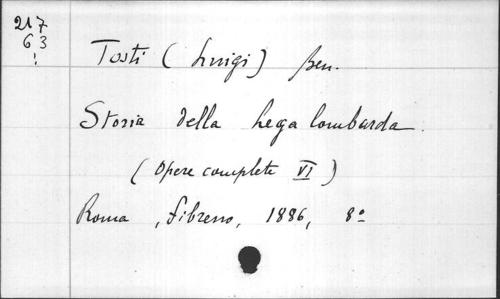 217
63
!
Tosti (Luigi) Ben.
Storia della Lega lombarda.
(Opere complete VI)
Roma, 1886, 8º